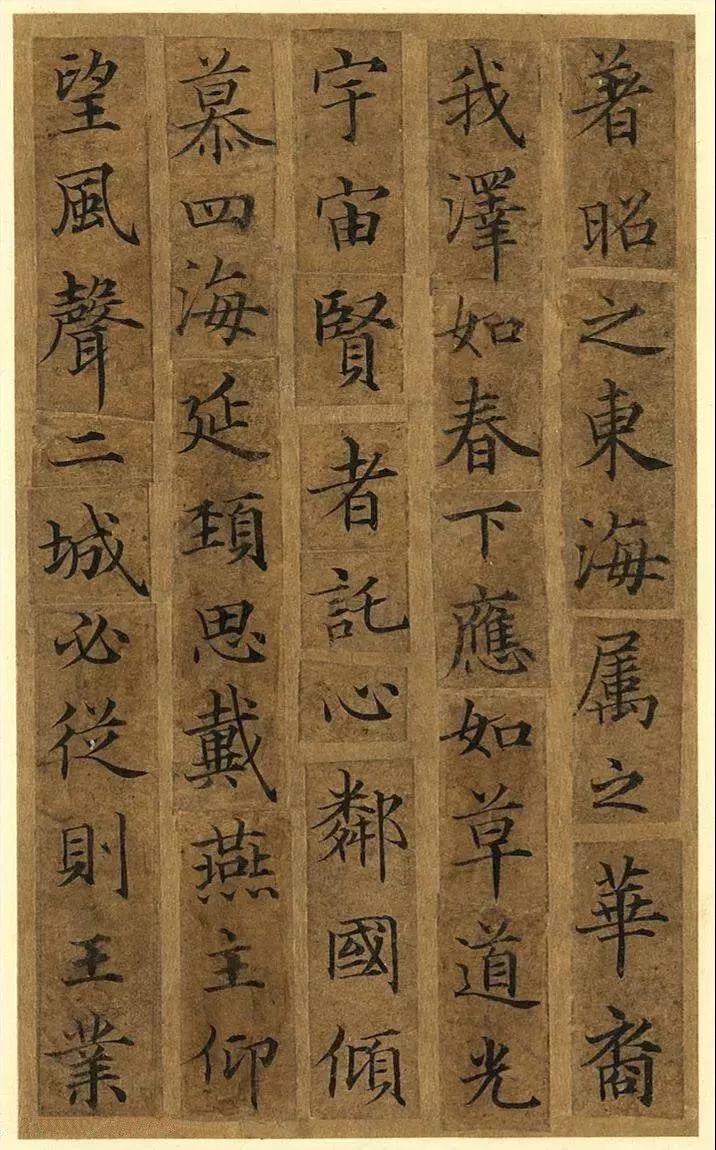 著昭之東海属之華裔
我澤如春下應如草道光
宇宙賢者託心鄰國傾
慕四海延頚思戴燕主仰
望風聲二城必從則王業